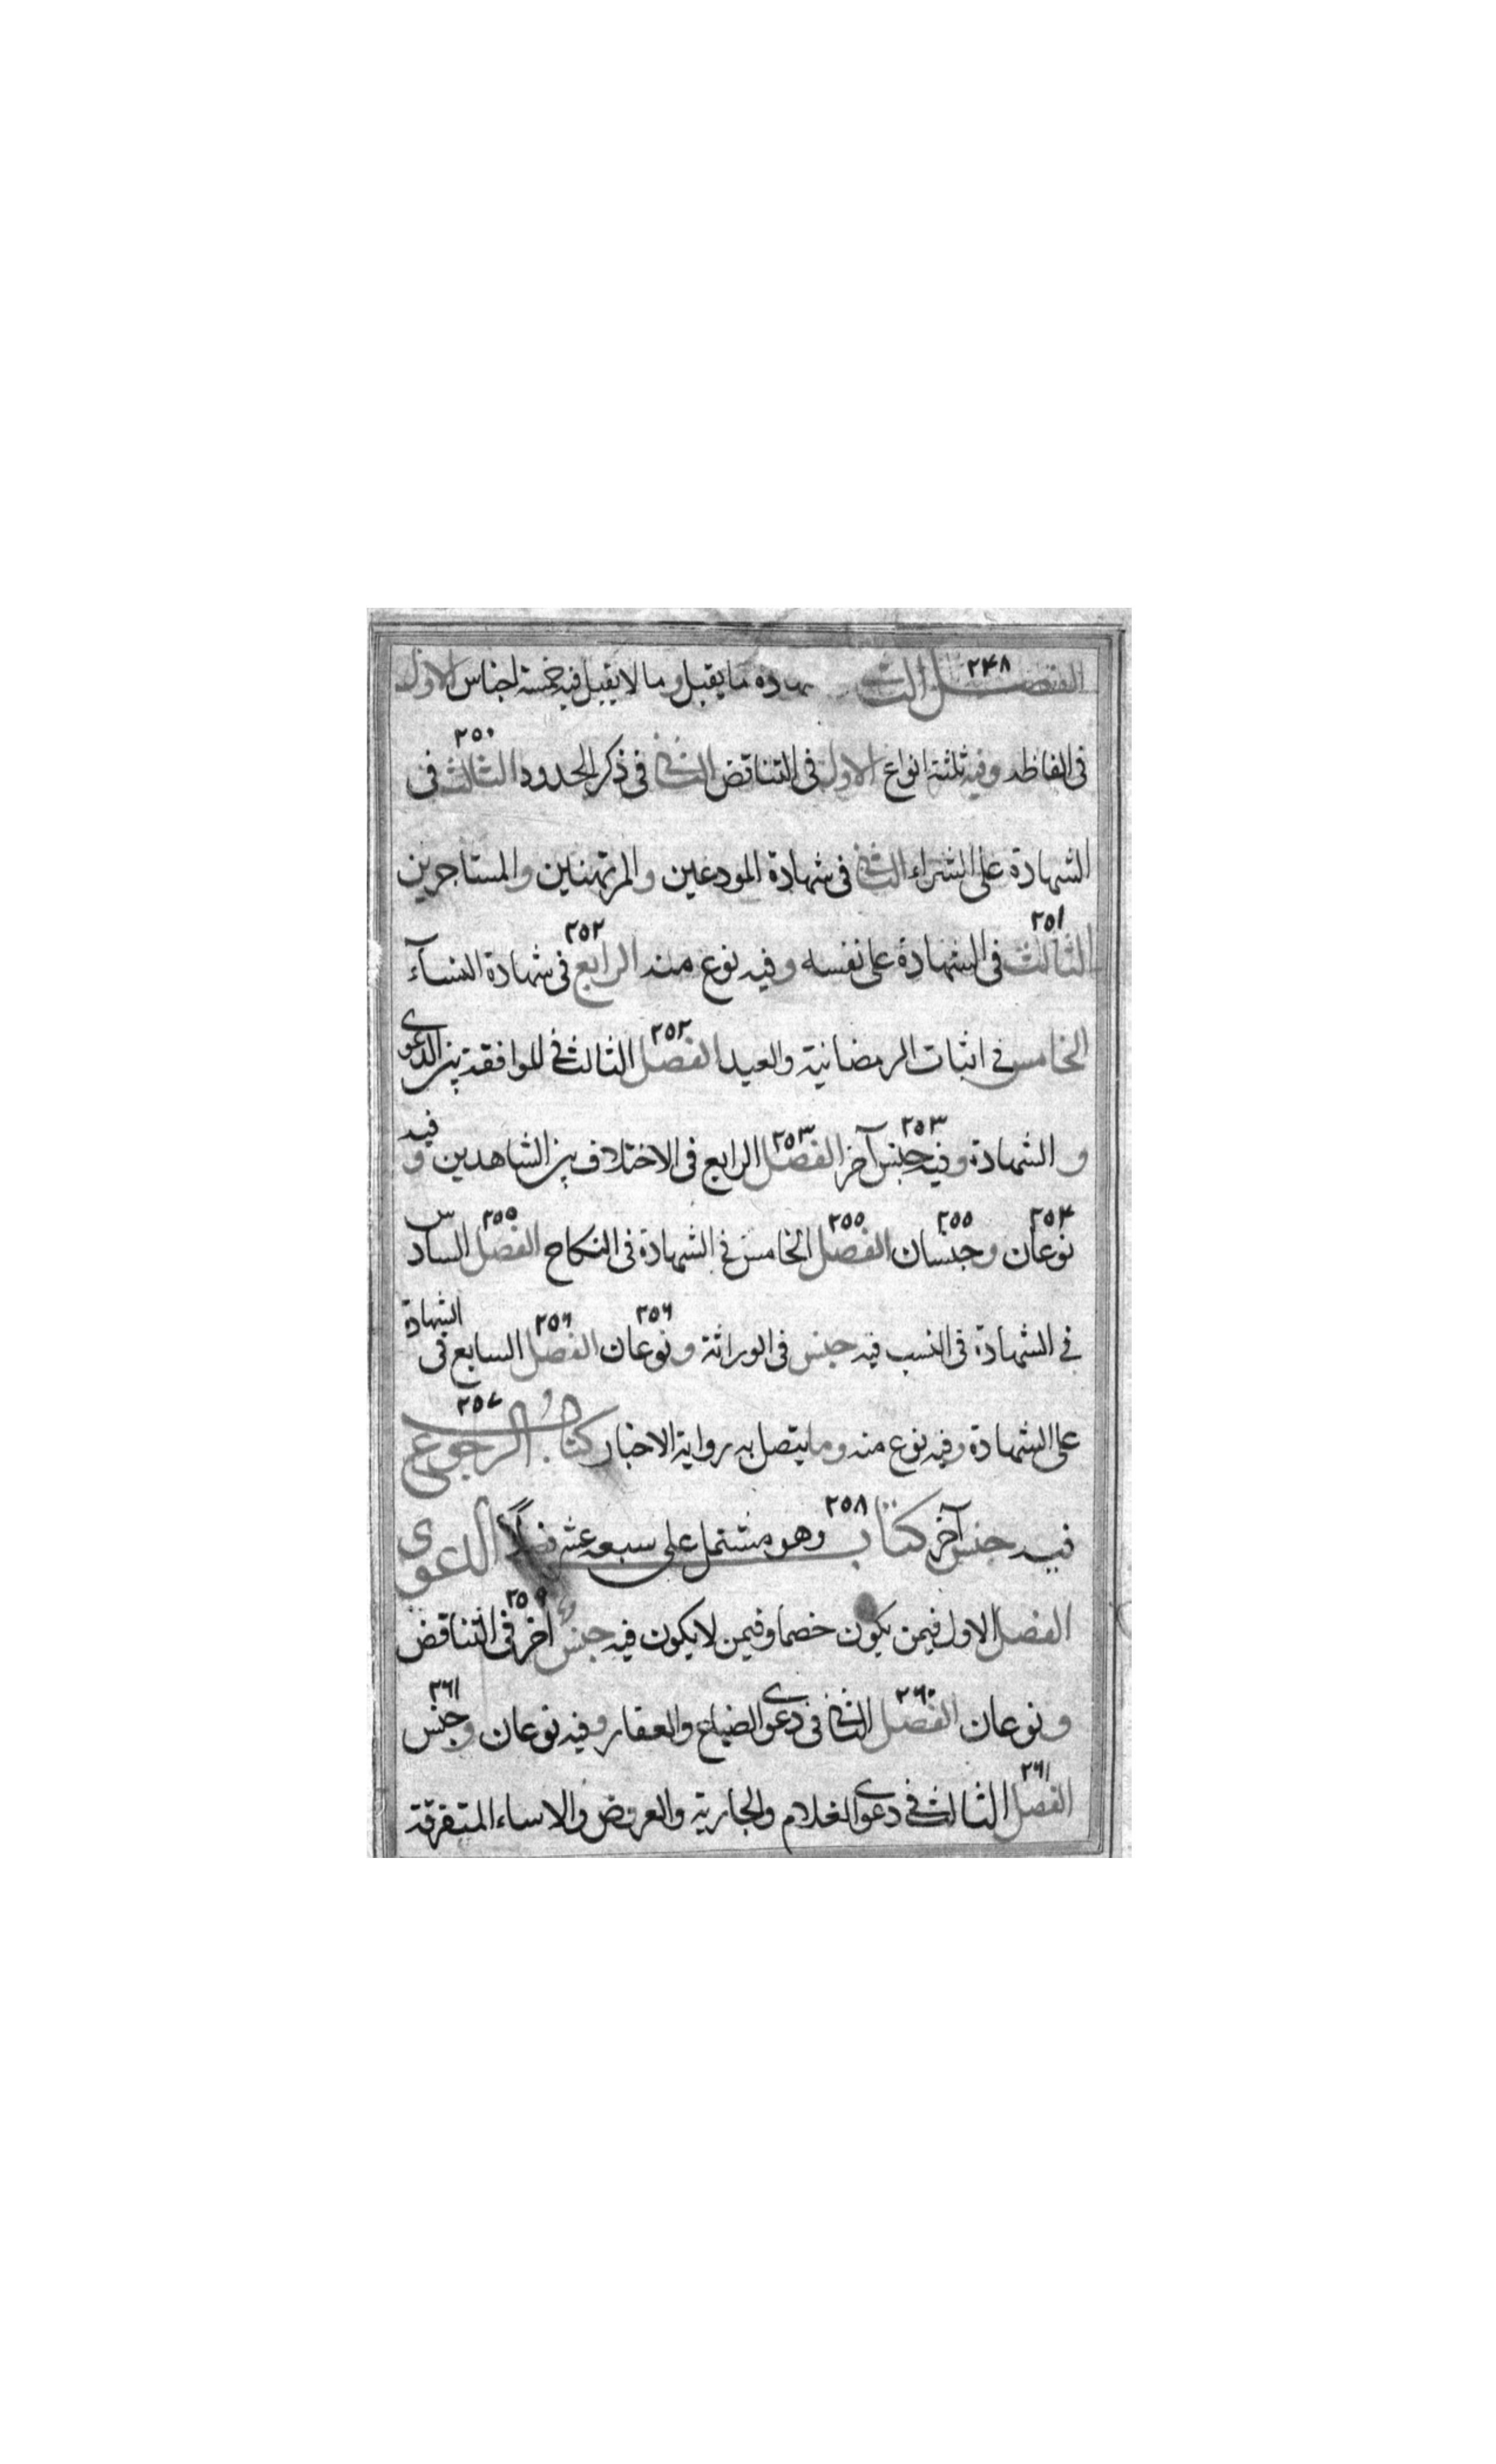 الفصل الثاني ٢٤٨ ما يقبل وما لا يقبل فيه خمسة اجناس الاول
في الفاظه وفيه ثلثة انواع الاول في التناقض الثاني في ذكر الحدود ٢٥٠ الثالث في
الشهادة على الشراء الثاني في شهادة المودعين والمرتهنين والمستاجرين
الثالث ٢٥١ في الشهادة على نفسه وفيه نوع منه الرابع ٢٥٢ في شهادة النسآء
الخامس في اثبات الرمضانية والعيد الفصل ٢٥٢ الثالث في الموافقة بين الدعوى
و الشهادة وفيه جنس ٢٥٣ آخر الفصل ٢٥٣ الرابع في الاختلاف بين الشاهدين و فيه
نوعان ٢٥٤ وجنسان ٢٥٥ الفصل ٢٥٥ الخامس في الشهادة في النكاح الفصل ٢٥٥ السادس
في الشهادة في النسب فيه جنس في الوراثة ونوعان ٢٥٦ الفصل ٢٥٦ السابع في الشهادة
على الشهادة وفيه نوع منه وما يتصل به رواية الاخبار كتاب الرجوع ٢٥٧
فيه جنس آخر كتاب ٢٥٨ وهو مشتمل على سبعة عشر فصلاً الدعوى
الفصل الاول فيمن يكون خصما وفيمن لا يكون فيه جنس آخر ٢٥٩ في التناقض
ونوعان الفصل ٢٦٠ الثاني في دعوى الضياع والعقار وفيه نوعان وجنس ٢٦١
الفصل ٢٦١ الثالث في دعوى الغلام والجارية والعروض والاساء المتفرقة